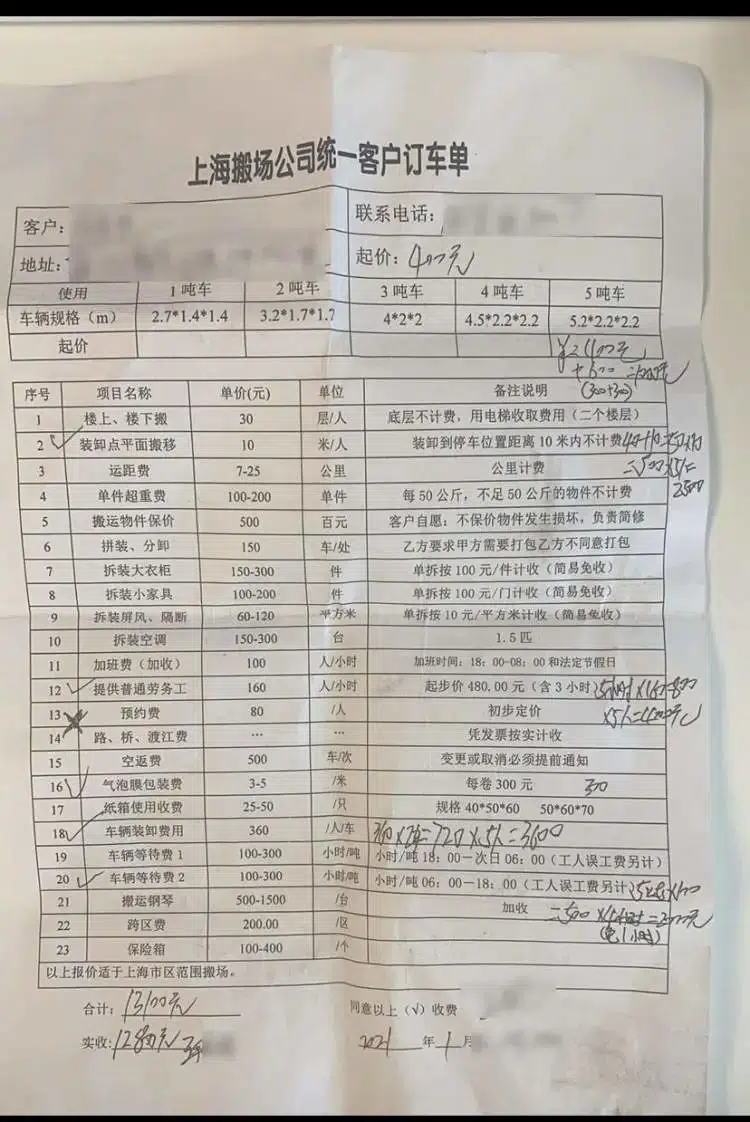 上海搬场公司统一客户订车单
客户：
联系电话：
地址：
起价：400元
使用 1吨车 2吨车 3吨车 4吨车 5吨车
车辆规格（m） 2.7*1.4*1.4 3.2*1.7*1.7 4*2*2 4.5*2.2*2.2 5.2*2.2*2.2
起价 ¥2400元
+600
(300+300)
序号 项目名称 单价(元) 单位 备注说明
1 楼上、楼下搬 30 层/人 底层不计费，用电梯收取费用（二个楼层）
2 装卸点平面搬移 10 米/人 装卸到停车位置距离10米内不计费
=500×5人=
2500
3 运距费 7-25 公里 公里计费
4 单件超重费 100-200 单件 每50公斤，不足50公斤的物件不计费
5 搬运物件保价 500 百元 客户自愿：不保价物件发生损坏，负责简修
6 拼装、分卸 150 车/处 乙方要求甲方需要打包乙方不同意打包
7 拆装大衣柜 150-300 件 单拆按100元/件计收（简易免收）
8 拆装小家具 100-200 件 单拆按100元/门计收（简易免收）
9 拆装屏风、隔断 60-120 平方米 单拆按10元/平方米计收（简易免收）
10 拆装空调 150-300 台 1.5匹
11 加班费（加收） 100 人/小时 加班时间：18：00-08：00和法定节假日
12 提供普通劳务工 160 人/小时 起步价480.00元（含3小时） 5小时×160=800
×5人=4000元
13 预约费 80 /人 初步定价
14 路、桥、渡江费 … … 凭发票按实计收
15 空返费 500 车/次 变更或取消必须提前通知
16 气泡膜包装费 3-5 /米 每卷300元 300
17 纸箱使用收费 25-50 /只 规格40*50*60 50*60*70
18 车辆装卸费用 360 /人/车 360×2车=720×5人=3600
19 车辆等待费1 100-300 小时/吨 小时/吨18：00－次日06：00（工人误工费另计）
20 车辆等待费2 100-300 小时/吨 小时/吨06：00－18：00（工人误工费另计）
21 搬运钢琴 500-1500 /台 加收
22 跨区费 200.00 /区
23 保险箱 100-400 /个
以上报价适于上海市区范围搬场。
合计：13100元 同意以上（√）收费
实收：12800元 2021年1月